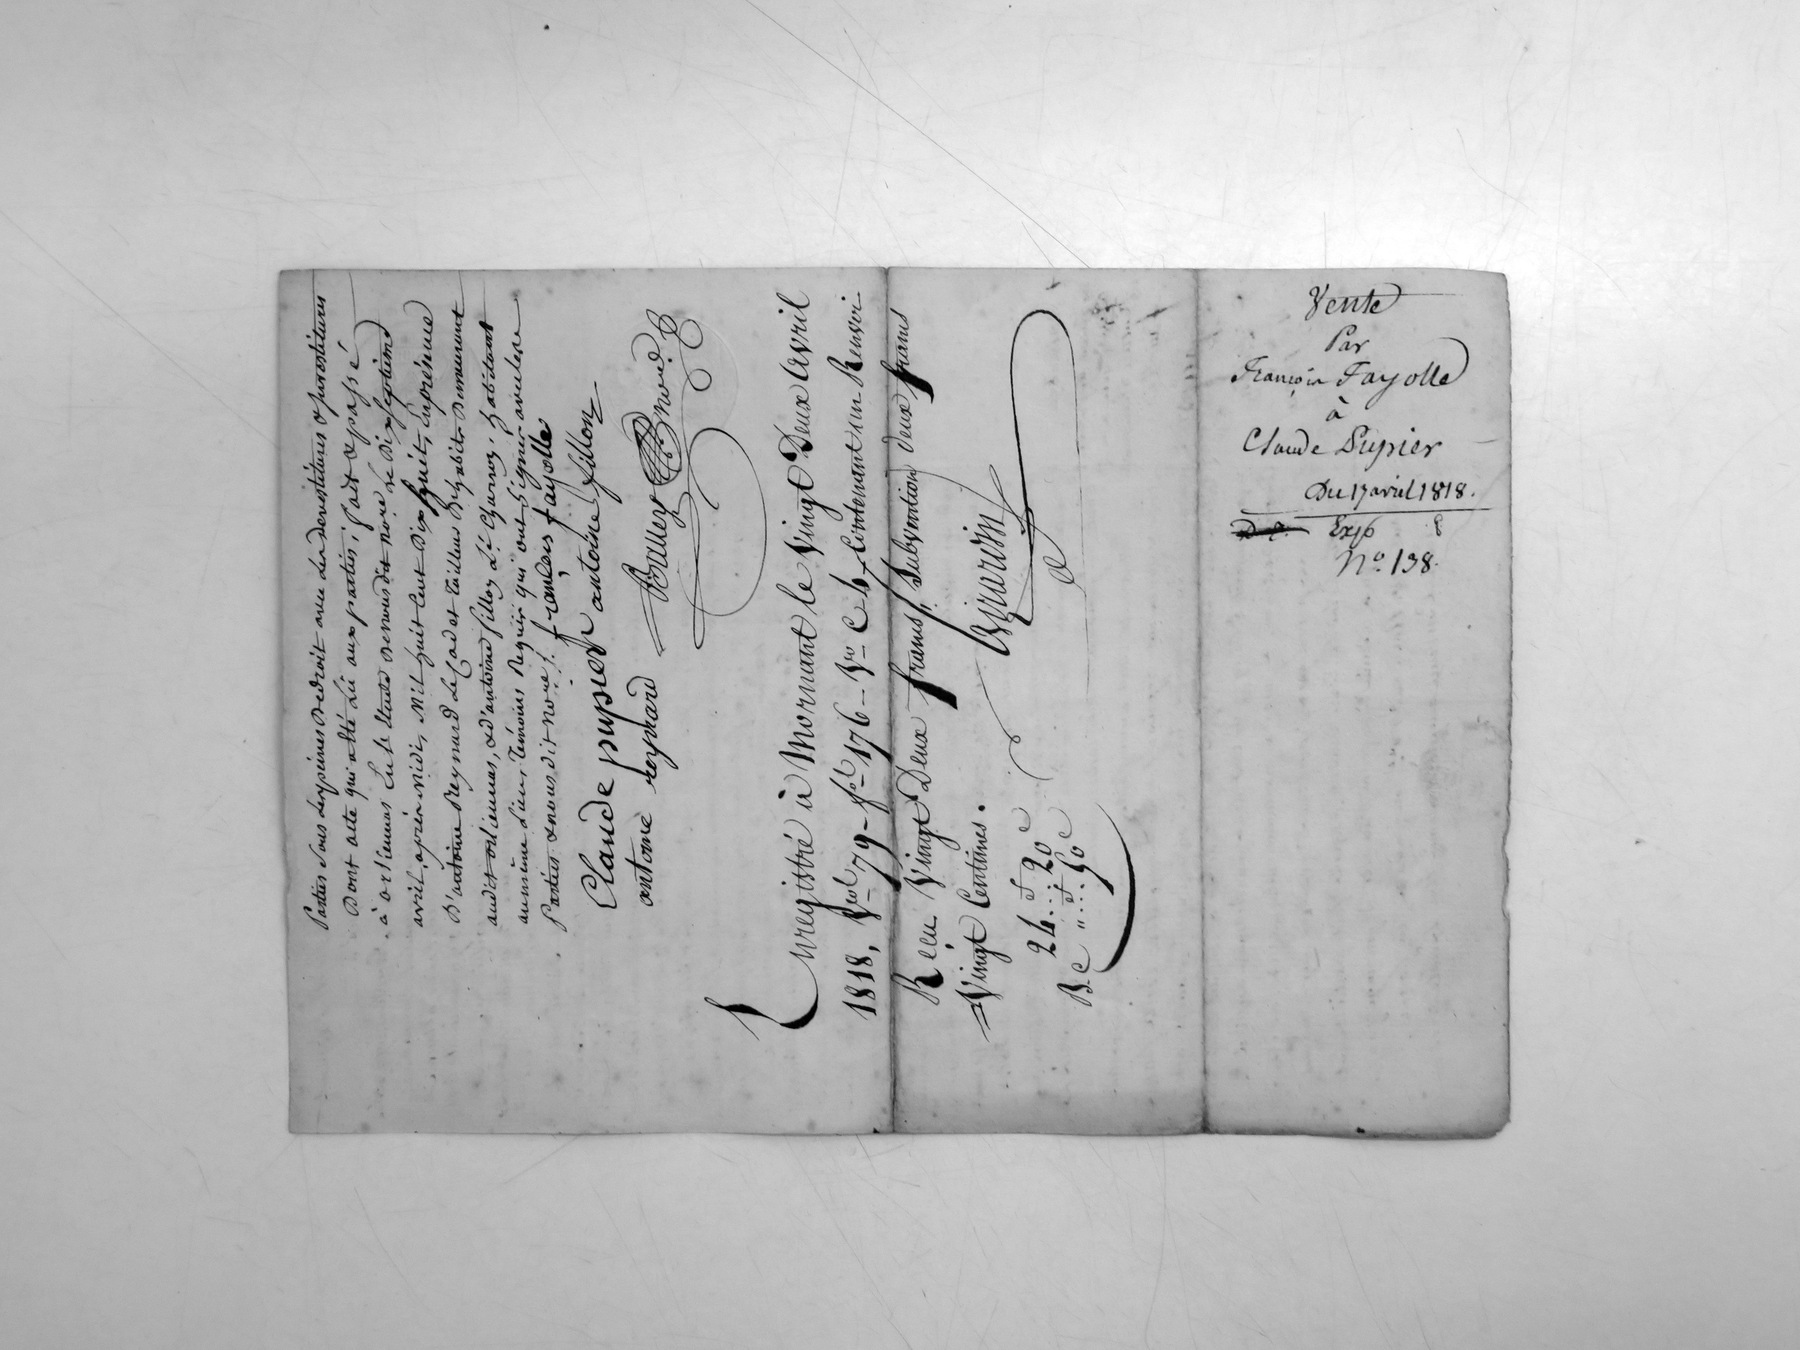 Parties sous les peines de droit avec les devestitures & jnvestitures
Dont acte qui a été Lû aux parties, fait & passé
à orlienas En L'Etude de nous dit no.re Le Dix septieme
avril, après Midi, Mil huit Cent Dix huit, En présence
D'antoine Reynard Le Cadet tailleur D'habits Demeurant
audit orlienas, & d'antoine fillon habitant
aumême Lieu, témoins Requis qui ont Signé avec les
Parties & nous dit no.re /. françois fayolle
Claude pupier antoine fillon
antoine reynard
Enregistré à Mornant le Vingt Deux avril
1818, Vol 79 - fo 176 - Vo C 6, Contenant un Renvoi
Reçu Vingt Deux francs, Subvention deux francs
Vingt Centimes.
24 f 20 c
B. c " f 50 c
Girardin
Vente
Par
François Fayolle
à
Claude Pupier
Du 17 avril 1818.
Exp
No. 138.